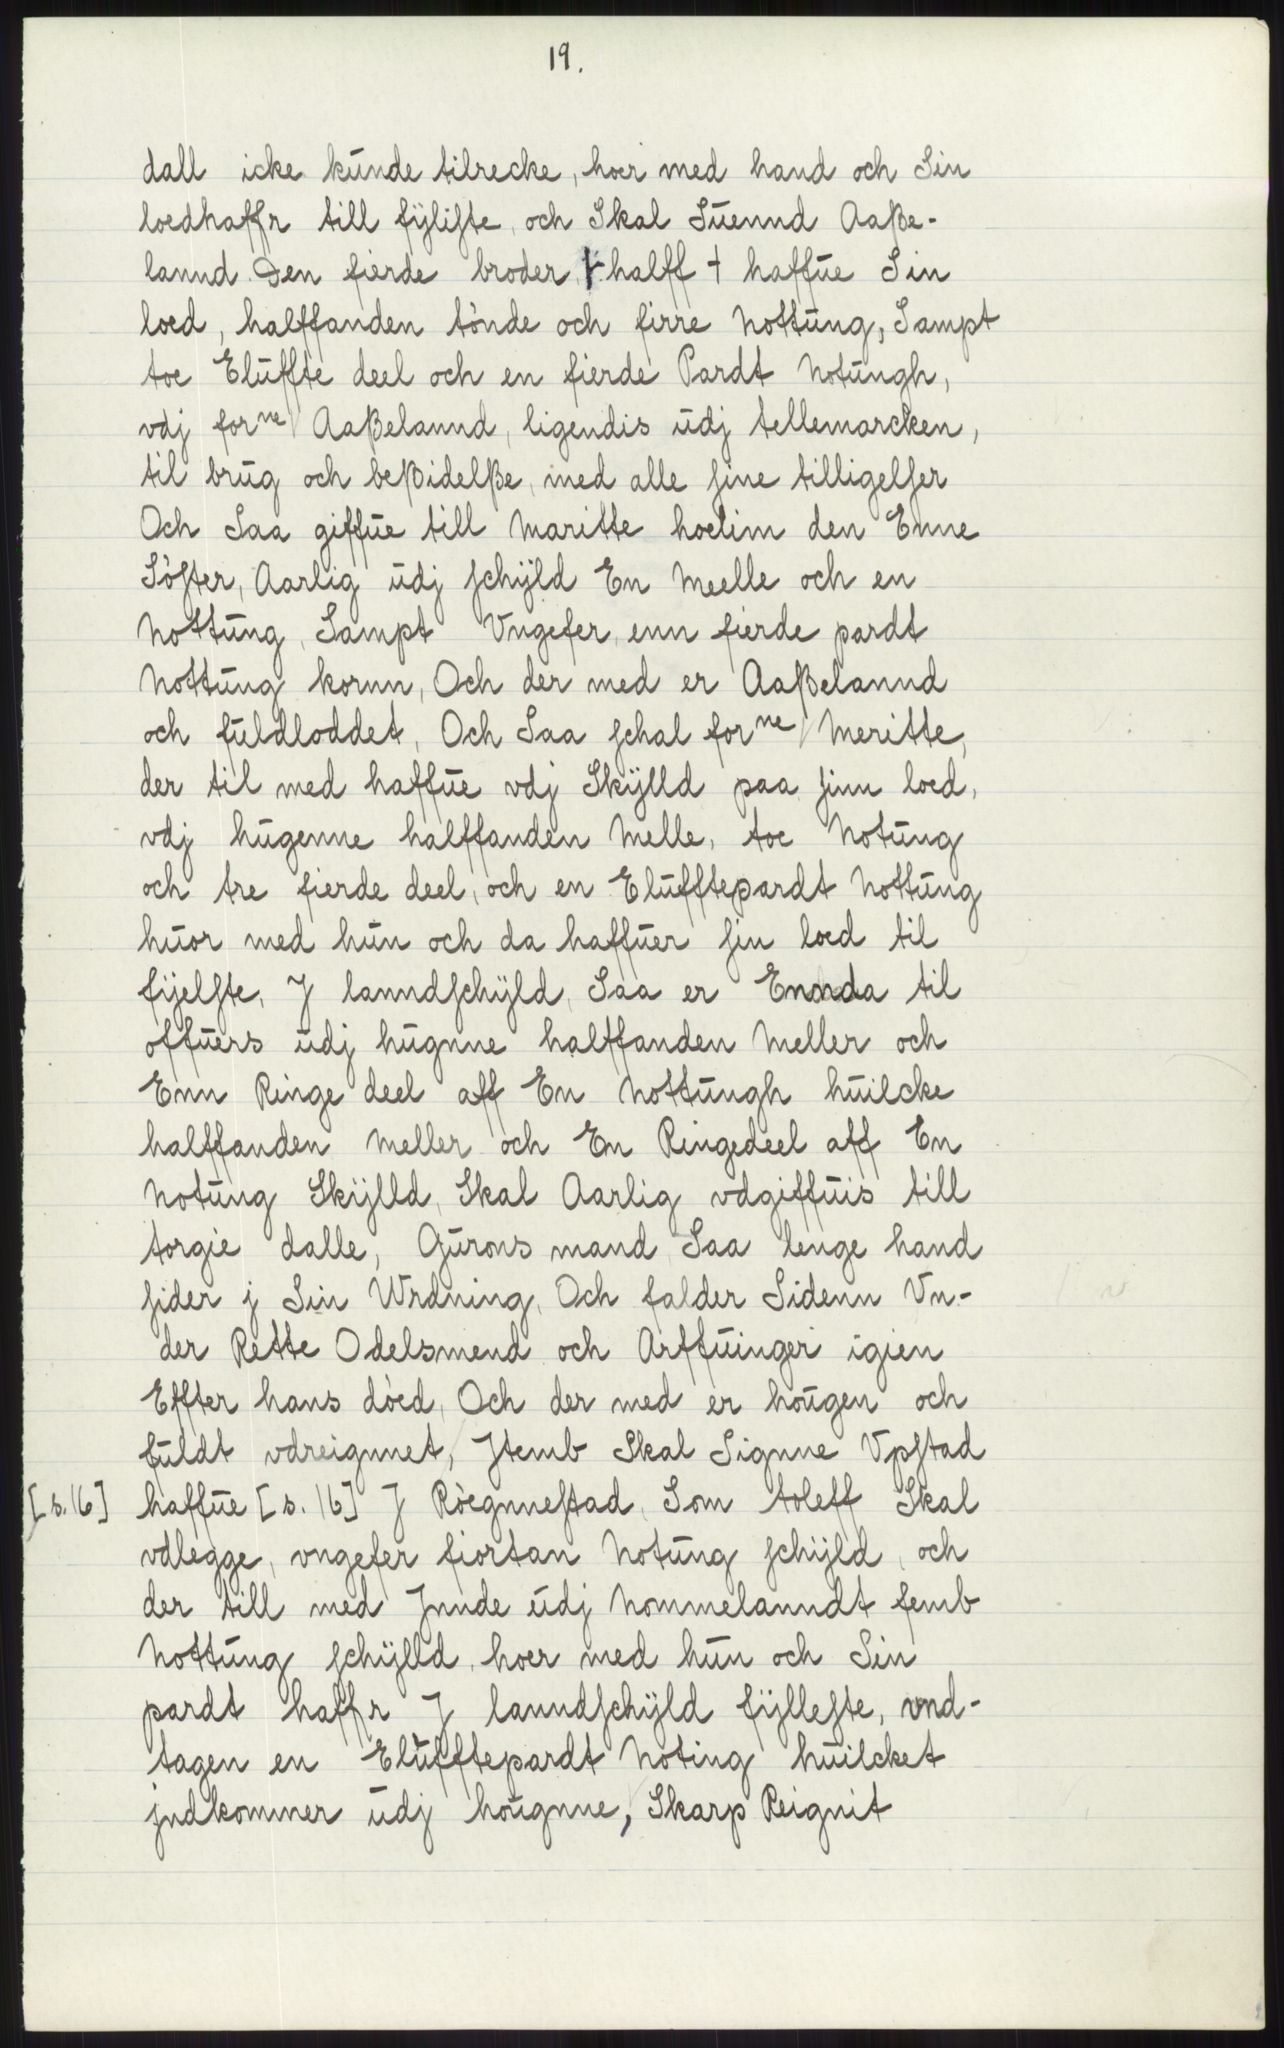 19.
dall icke kunde tilrecke, hoer med hand och Sin
loedhaffr till fÿliste, och Skal Suennd Aaße-
lannd Den fierde broder ꝉ halff + haffue Sin
loed, halffanden tønde och firre Nottung, Sampt
toe Eluffte deel och en fierde Pardt Notungh,
vdj forne Aaßelannd, ligendis udj tellemarcken,
til brug och beßidelße, med alle sine tilligelser
Och Saa giffue till Maritte hoelim den Enne
Søster, Aarlig udj schÿld En Meelle och en
Nottung, Sampt Vngefer enn fierde pardt
Nottung kornn, Och der med er Aaßelannd
och fuldloddet, Och Saa schal forne Meritte,
der til med haffue vdj Skÿlld paa sinn loed,
vdj hugenne halffanden Melle, toe Notung
och tre fierde deel, och en Elufftepardt Nottung
huor med hun och da haffuer sin loed til
fÿelste, J lanndschÿld, Saa er Ennda til
offuers udj hugnne halffanden Meller och
Enn Ringe deel aff En Nottungh huilcke
halffanden Meller och En Ringedeel aff En
Notung Skÿlld, Skal Aarlig vdgiffuis till
torgie dalle, Gurons mand Saa lenge hand
sider j Sin Wrdning, Och falder Sidenn Vn-
der Rette Odelsmend och Arffuinger igien
Effter hans døed, Och der med er hougen och
fuldt vdreignnet, Jtemb Skal Signne Vpstad
[s. 16] haffue [s. 16] J Røegnnestad, Som toleff Skal
vdlegge, vngefer fiortan Notung schÿld, och
der till med Jnnde udj Nommelanndt femb
Nottung schÿlld, hoer med hun och Sin
pardt haffr J lanndschÿld fÿlleste, vnd-
tagen en Elufftepardt Noting huilcket
jndkommer udj hougnne, Skarp Reignit